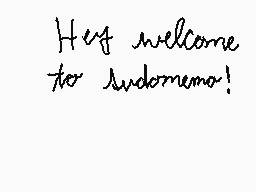 Hey welcome
to sudomemo!